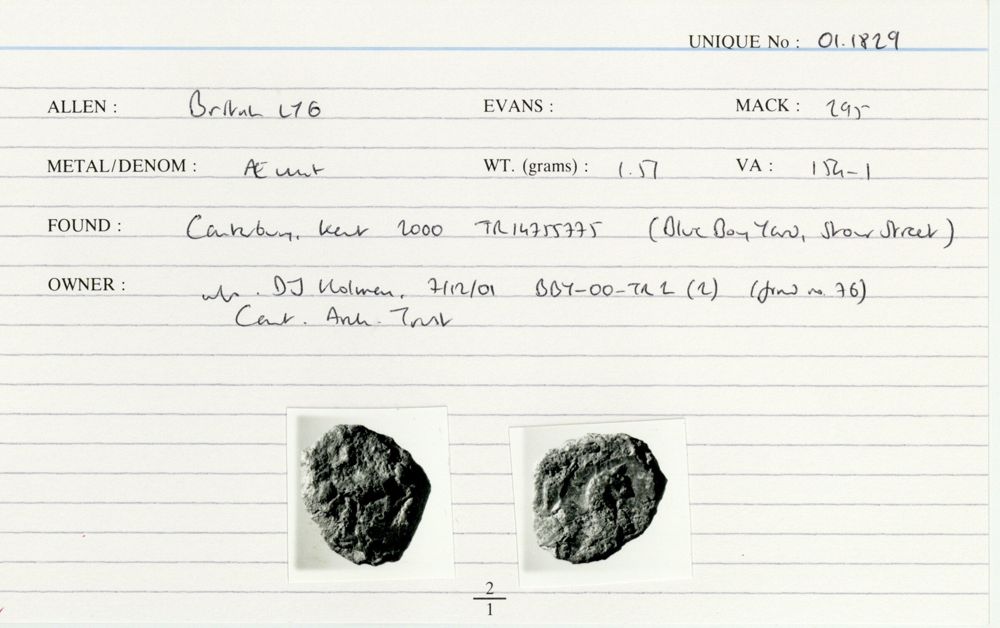 UNIQUE No : 01.1829
ALLEN : British LX6 EVANS : MACK : 295
METAL/DENOM : Æ unit WT. (grams) : 1.51 VA : 154-1
FOUND : Canterbury, Kent 2000 TR14755775 (Blue Boy Yard, Stour Street)
OWNER : info. DJ Holman, 7/12/01 BBY-00-TR2 (2) (find no. 76)
Cant. Arch. Trust
2
1